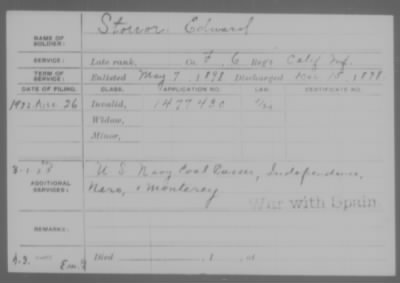 NAME OF SOLDIER: Edward
SERVICE: Late rank, Co. F, 6 Reg't Calif Inf.
TERM OF SERVICE: Enlisted May 7, 1898 Discharged 15, 1898
DATE OF FILING. CLASS. APPLICATION NO. LAW. CERTIFICATE NO.
26 Invalid, 1477430
Widow,
Minor,
ADDITIONAL SERVICES: U S Navy Coal Passer, Independence,
Nero, & Monterey
War with Spain.
REMARKS:
Died , 1 , at